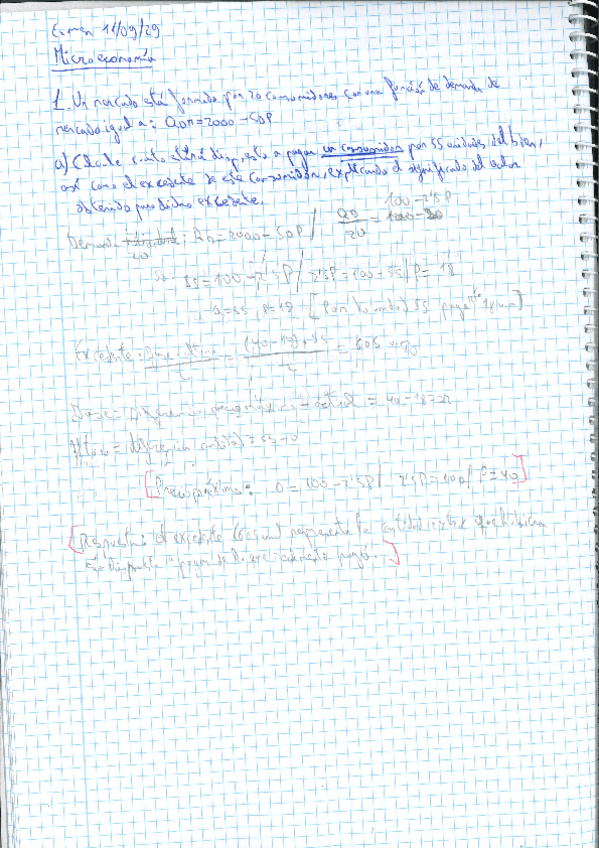 Examen 11/09/29
Microeconomía
1. Un mercado está formado por 20 consumidores con una función de demanda de
mercado igual a: QDM=2000-50P
a) Calcule cuánto estará dispuesto a pagar un consumidor por 55 unidades del bien,
así como el excedente de este consumidor, explicando el significado del valor
obtenido para dicho excedente.
Demanda individual: QD=2000-50P / QD/20 = 100-2'5P
20
55=100-2'5P / 2'5P=100-55 / P=18
Q=55, P=18 [Por la unidad 55 paga 18]
Excedente: Base·Altura/2 = (40-18)·55/2 = 605
Base= Diferencia = 40-18=22
Altura= diferencia = 55-0
[Precio máximo: 0=100-2'5P / 2'5P=100 / P=40]
[Respuesta: el excedente la cantidad extra que hubiera
dispuesta a pagar de lo que realmente pagó.]